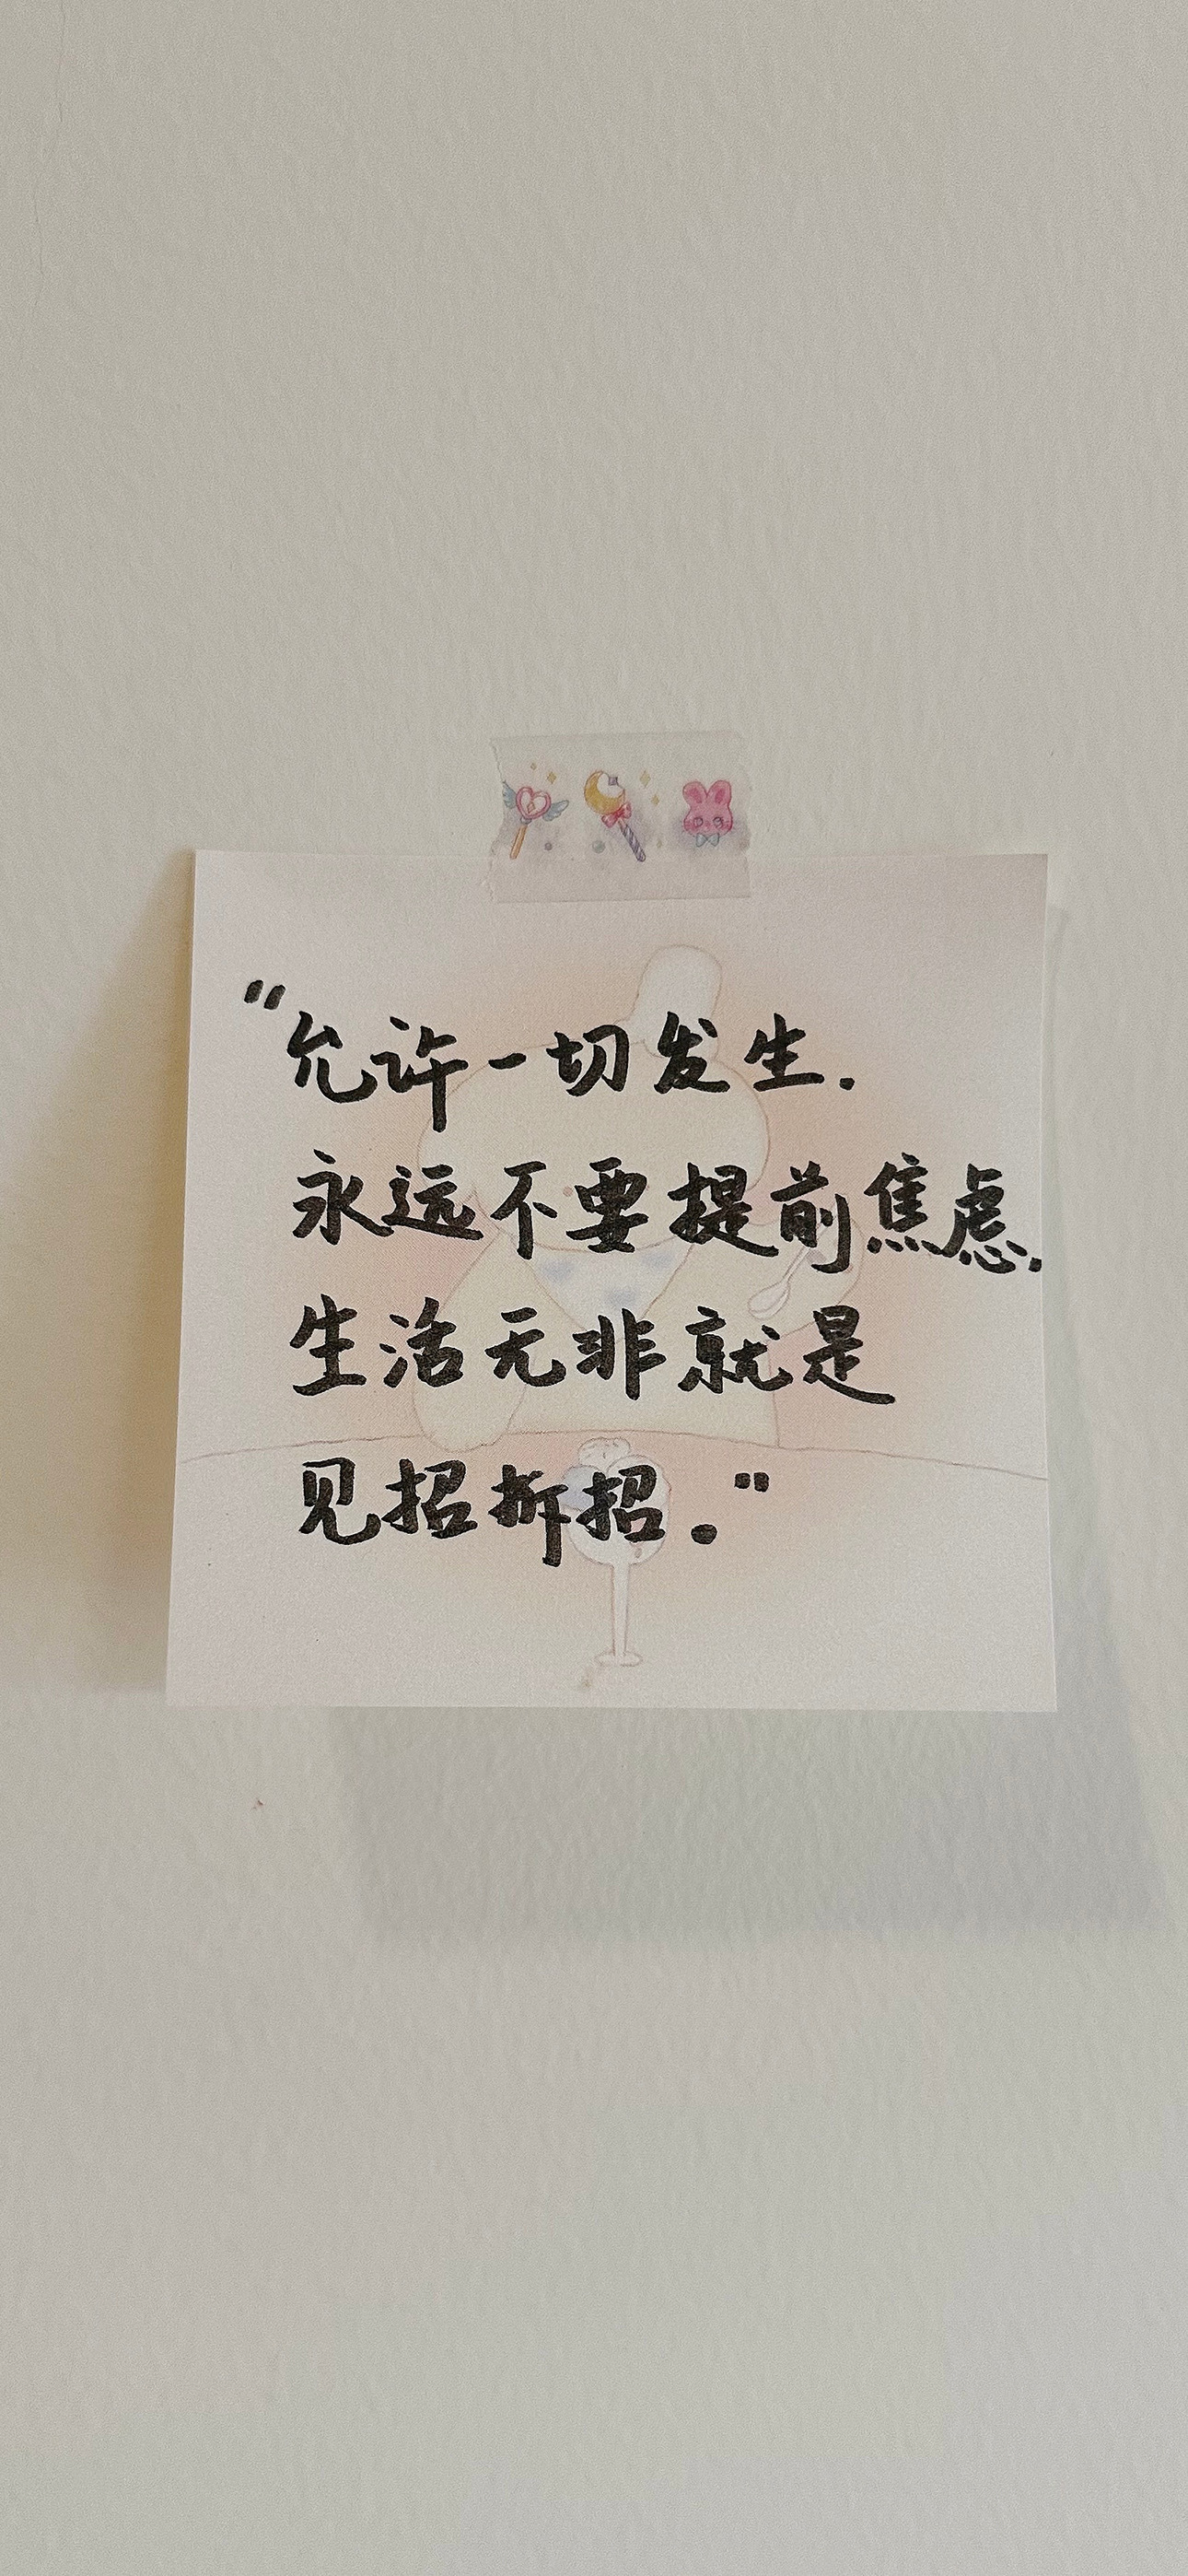 “允许一切发生.
永远不要提前焦虑.
生活无非就是
见招拆招.”